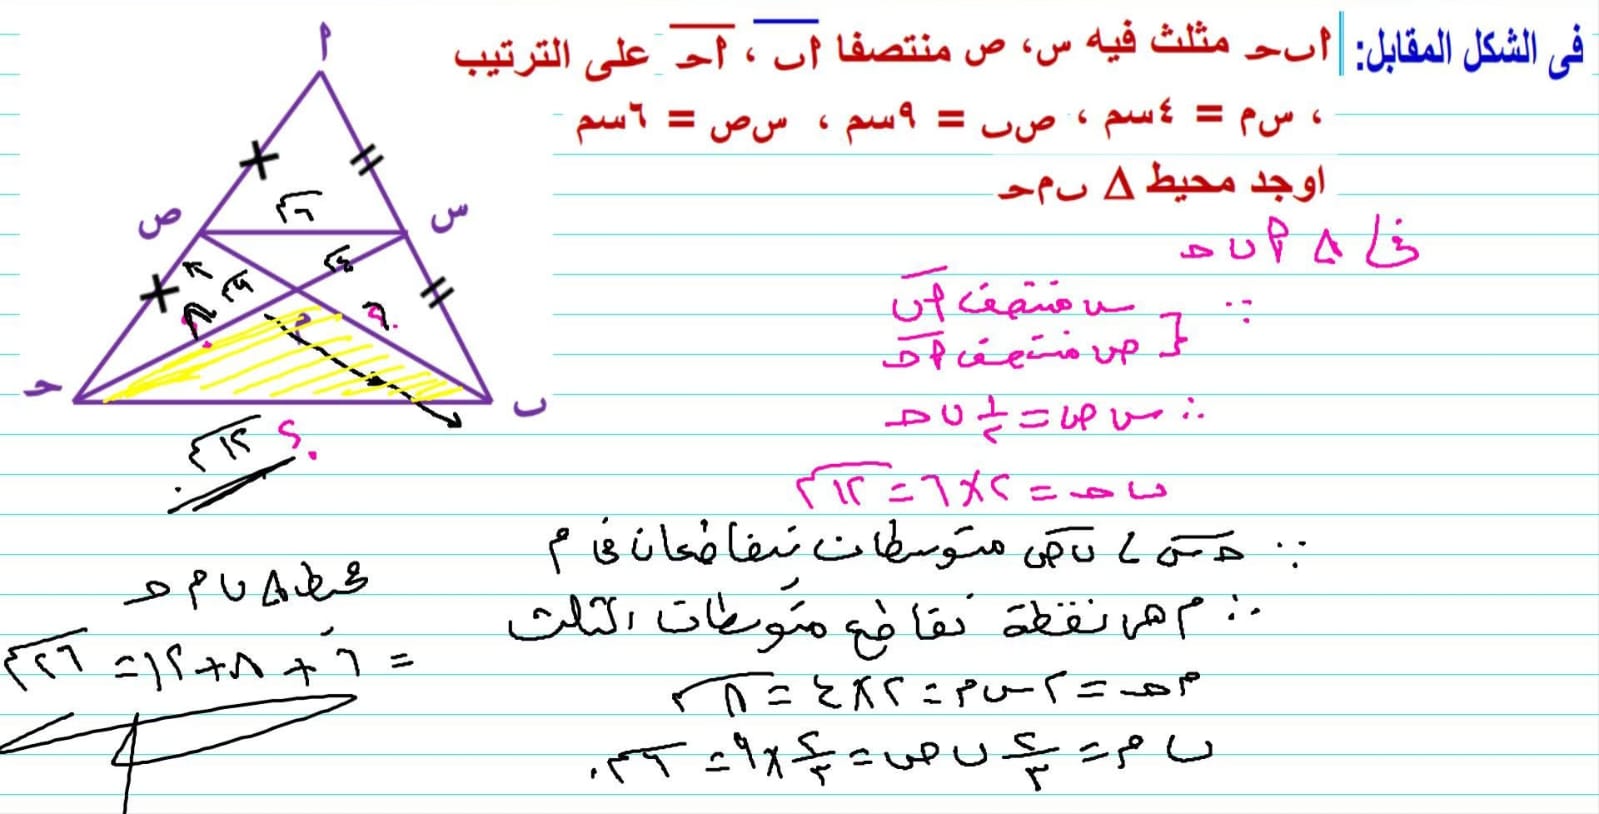 فى الشكل المقابل: ا ب حـ مثلث فيه س، ص منتصفا اب ، احـ على الترتيب
، س م = ٤سم ، ص ب = ٩سم ، س ص = ٦سم
اوجد محيط Δ ب م حـ
فى Δ ا ب حـ
∵ س منتصف ا ب
ص منتصف ا حـ
∴ س ص = ١/٢ ب حـ
ب حـ = ٢ × ٦ = ١٢ سم
∵ حـ س ، ب ص متوسطان يتقاطعان فى م
∴ م هى نقطة تقاطع متوسطات المثلث
م حـ = ٢ س م = ٢ × ٤ = ٨ سم
ب م = ٢/٣ ب ص = ٢/٣ × ٩ = ٦ سم
محيط Δ ب م حـ
= ٦ + ٨ + ١٢ = ٢٦ سم
ا
ص
س
٦سم
٤سم
٩سم
؟
؟
م
حـ
ب
١٢سم ؟